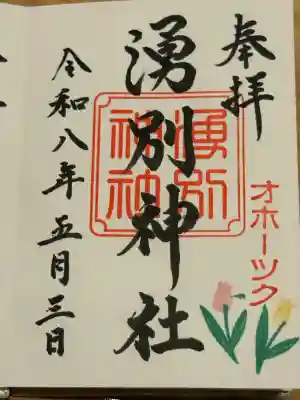 奉拝
オホーツク
湧別神社
湧別神社
令和八年五月三日